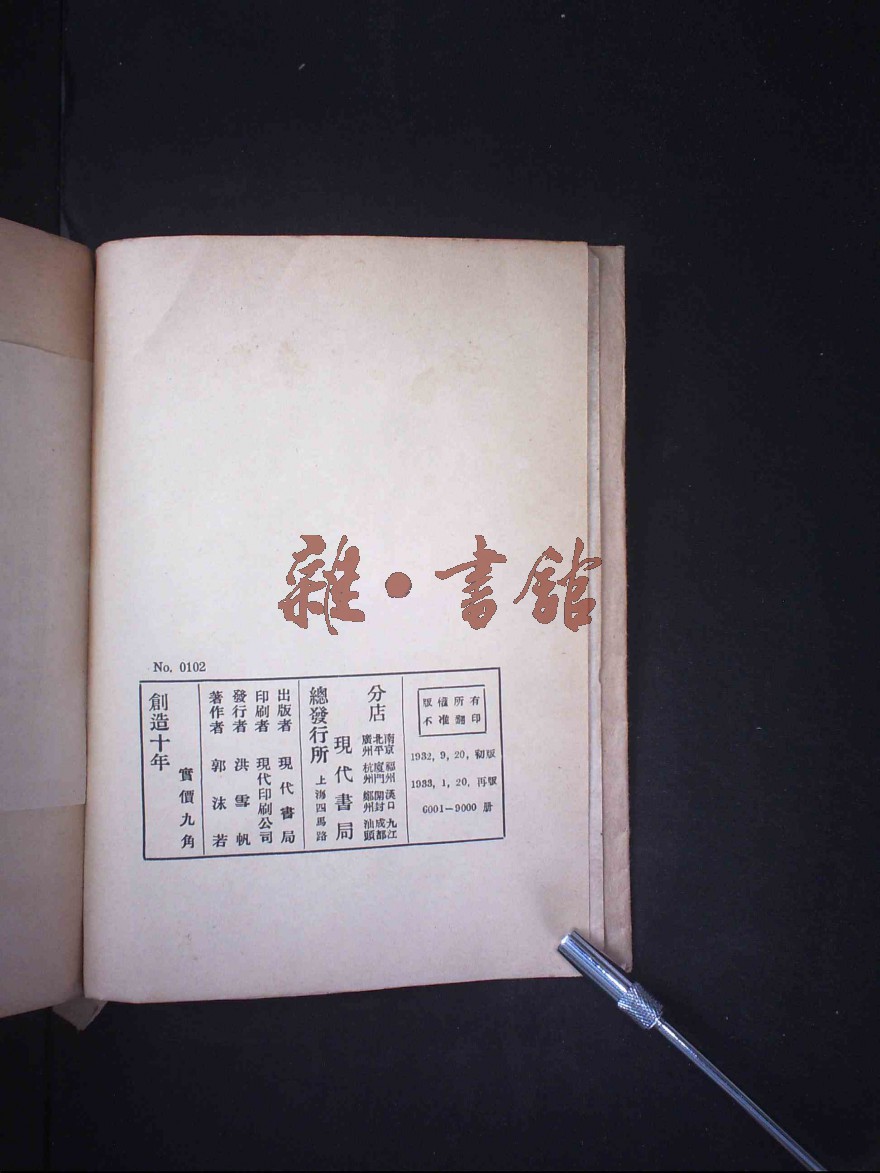 雜·書館
No. 0102
版權所有
不准翻印
1932, 9, 20, 初版
1933, 1, 20, 再版
6001—9000 册
分店
南京 福州 漢口 九江
北平 廈門 開封 成都
廣州 杭州 鄭州 汕頭
現代書局
總發行所 上海四馬路
出版者 現代書局
印刷者 現代印刷公司
發行者 洪雪帆
著作者 郭沫若
實價九角
創造十年